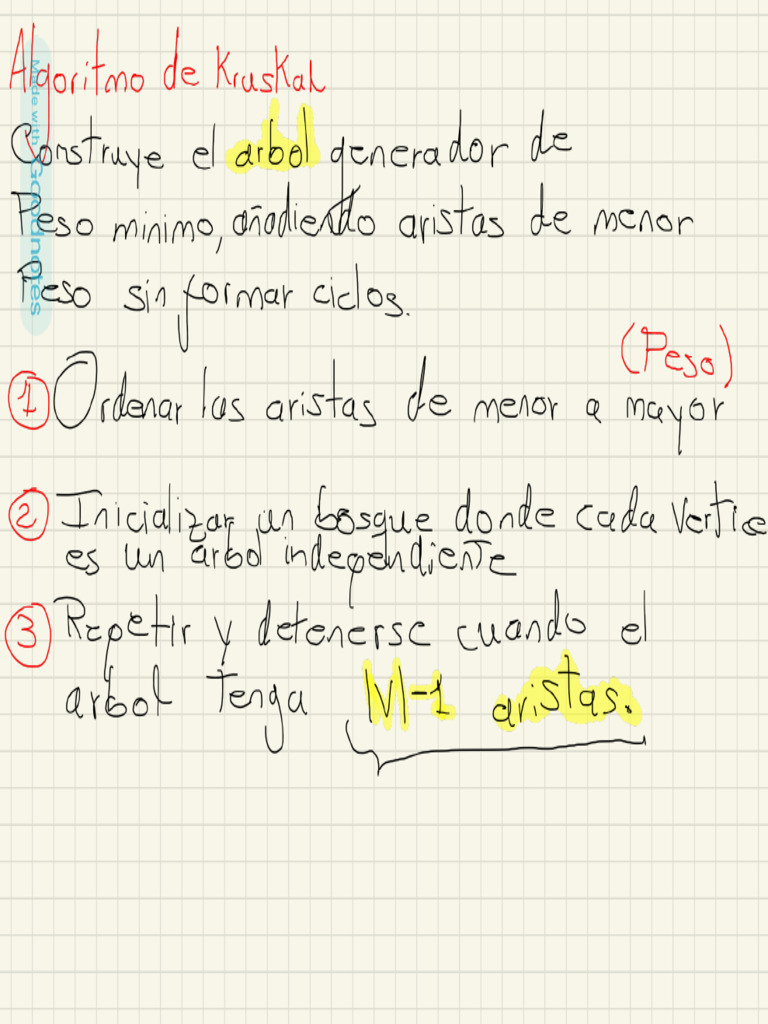 Algoritmo de Kruskal
Construye el arbol generador de
Peso minimo, añadiendo aristas de menor
Peso sin formar ciclos.
(Peso)
1 Ordenar las aristas de menor a mayor
2 Inicializar un bosque donde cada vertice
es un arbol independiente
3 Repetir y detenerse cuando el
arbol tenga |V|-1 aristas.
Made with Goodnotes